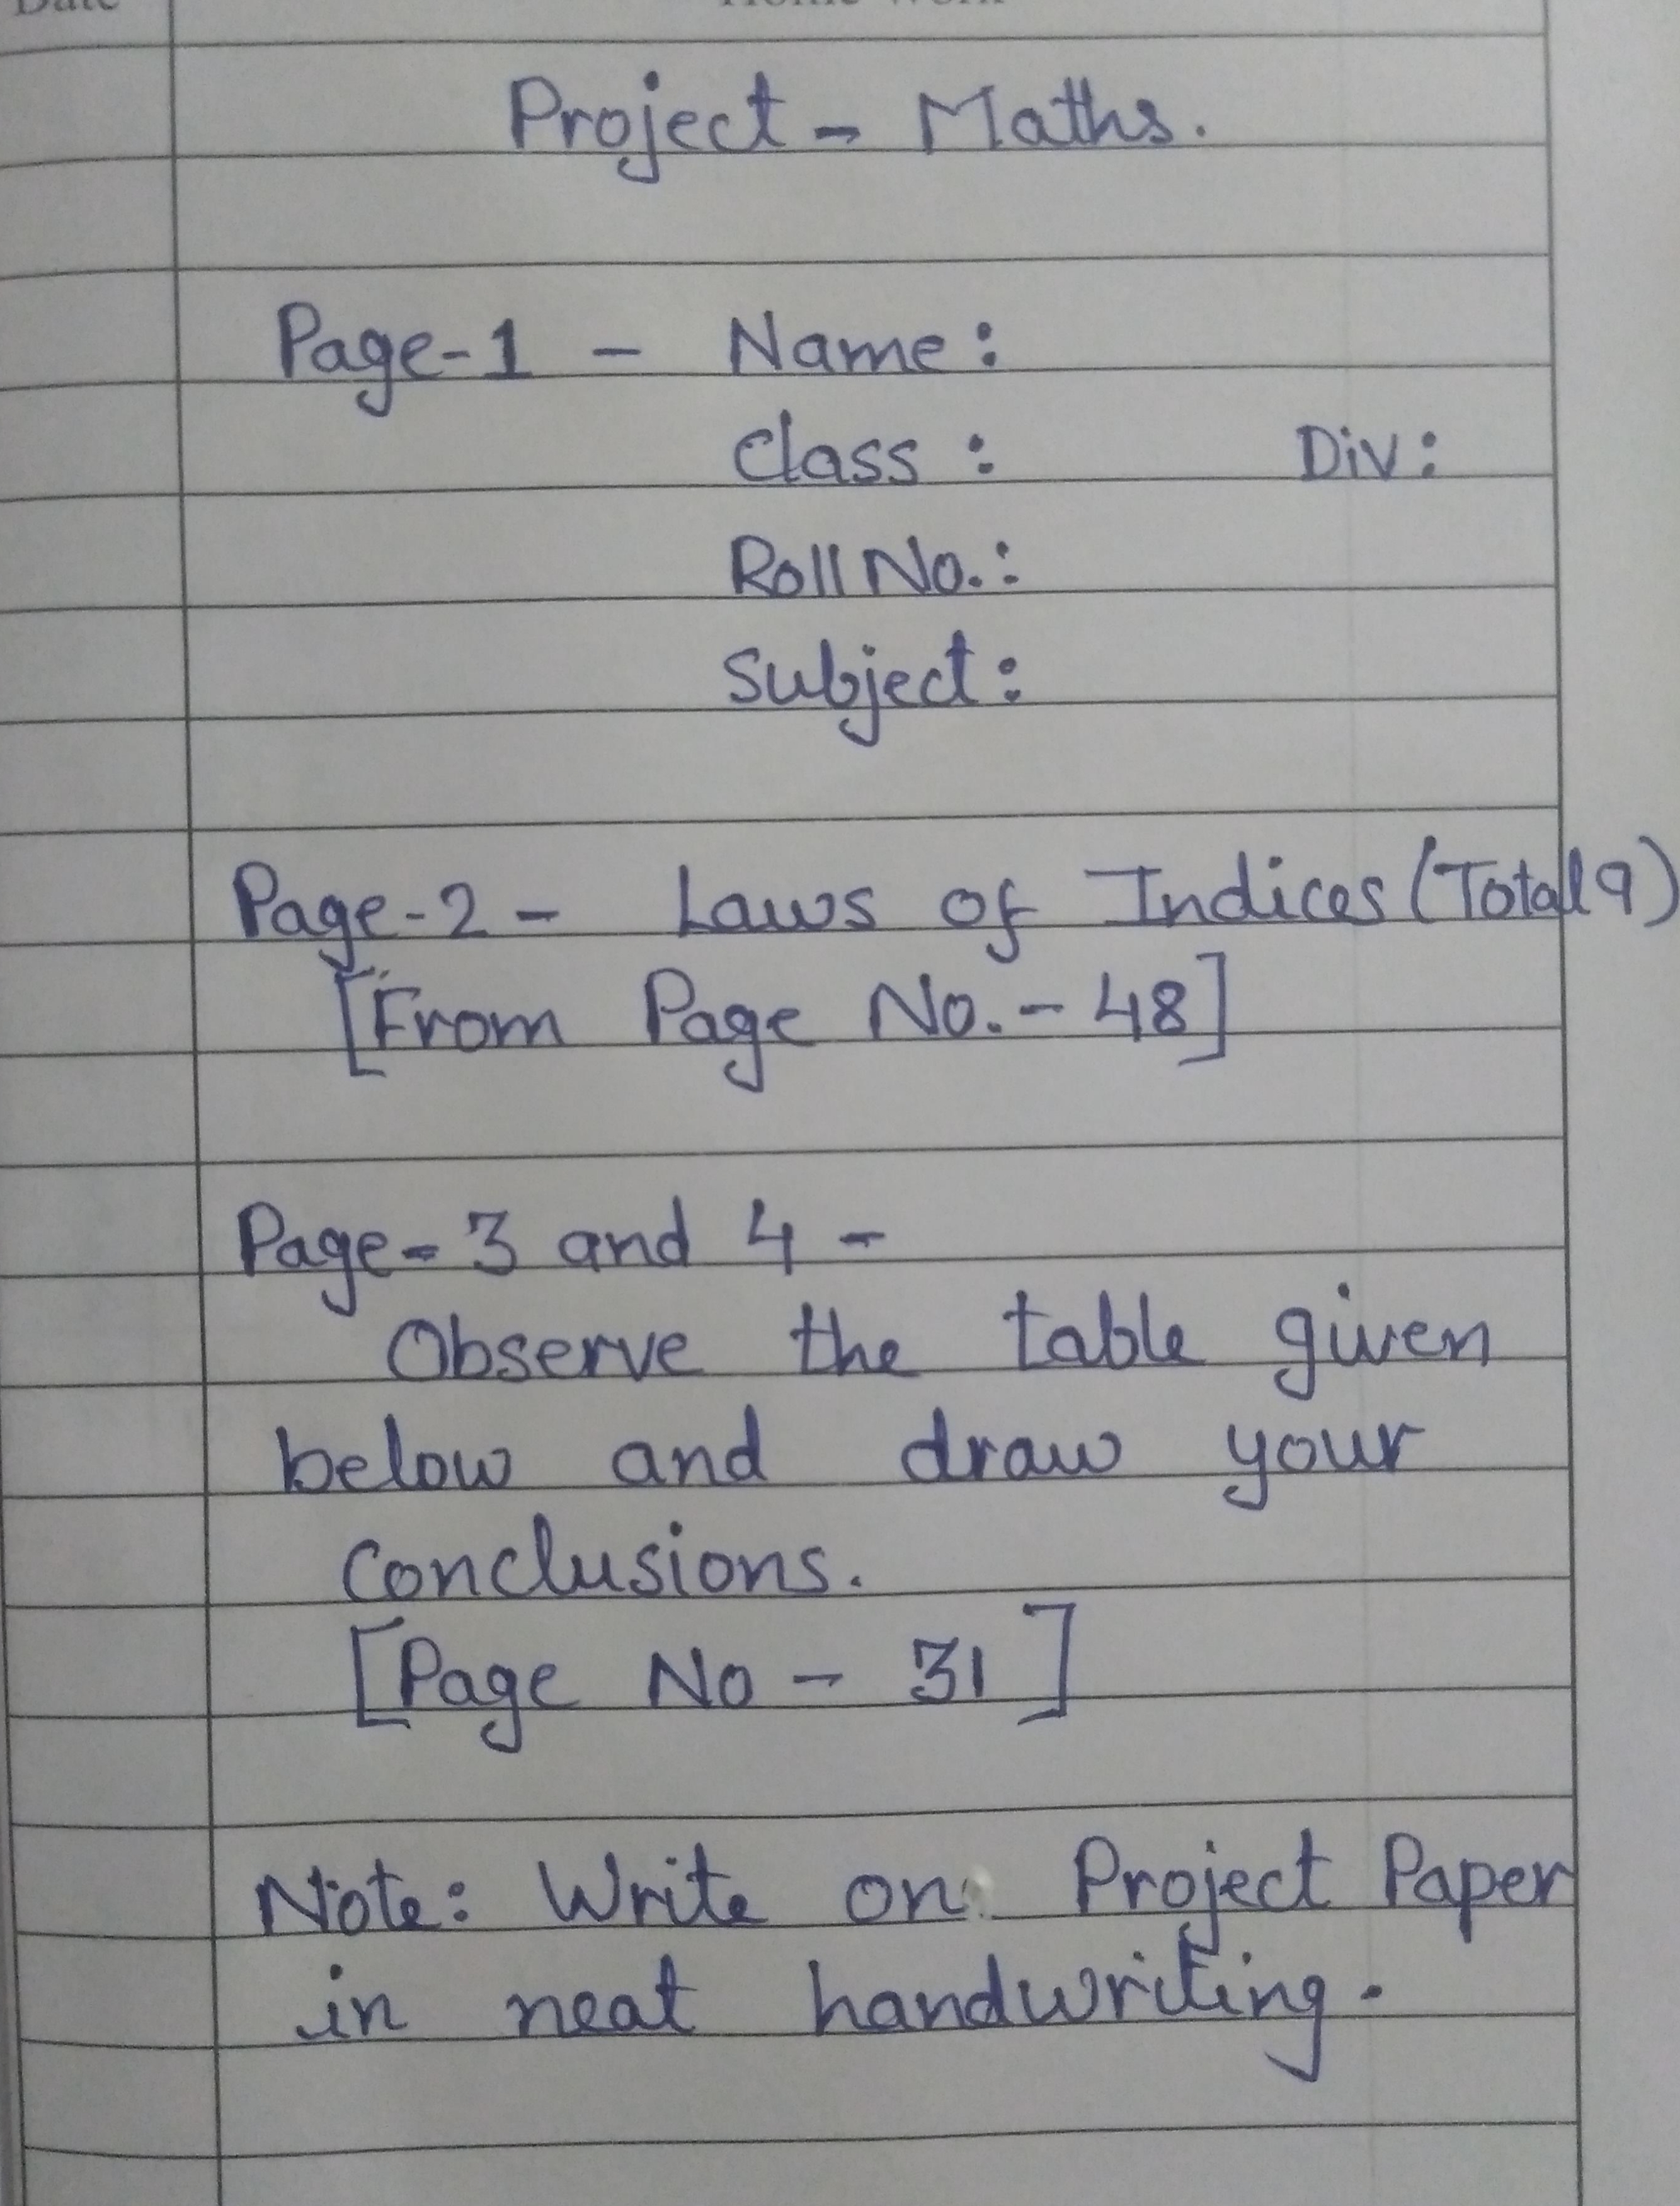 Date
Home Work
Project - Maths.
Page-1 - Name:
Class: Div:
Roll No.:
Subject:
Page-2 - Laws of Indices (Total 9)
[From Page No. - 48]
Page- 3 and 4 -
Observe the table given
below and draw your
conclusions.
[Page No - 31]
Note: Write on Project Paper
in neat handwriting.